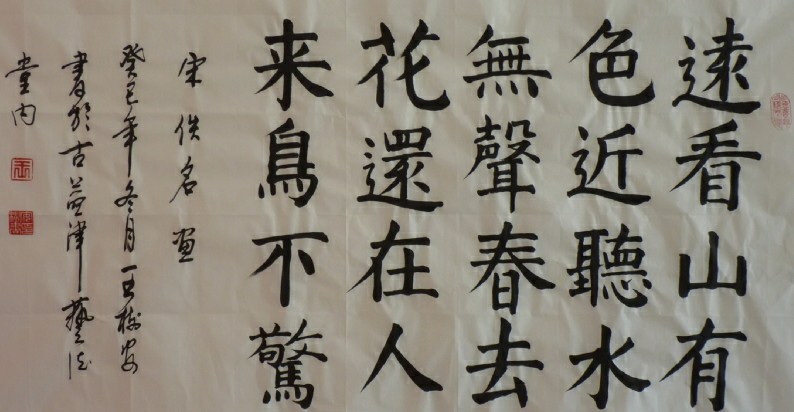 遠看山有
色近聽水
無聲春去
花還在人
来鳥不驚
宋佚名画
癸巳年冬月王樹安
書於古益津藝德
堂内